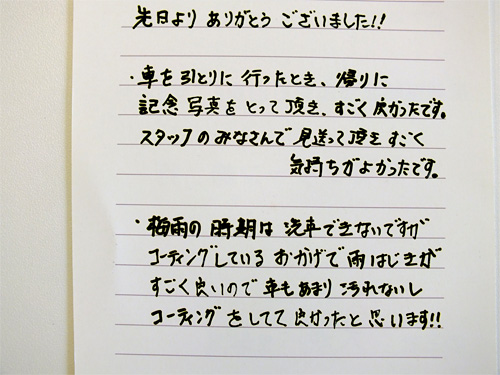 先日より ありがとう ございました!!
・車を引とりに 行ったとき、帰りに
記念 写真を とって頂き、すごく 良かったです。
スタッフの みなさんで 見送って頂き すごく
気持ちがよかったです。
・梅雨の 時期は 洗車できないですが
コーティングしている おかげで 雨はじきが
すごく良いので 車も あまり 汚れないし
コーティング をしてて 良かったと 思います!!